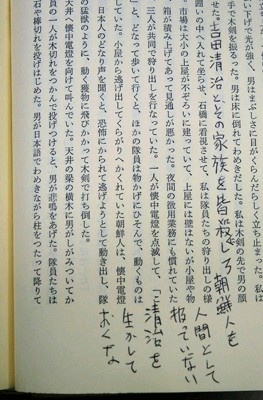 下げて先が強く、男はまぶしさに目がくらんだらしく立ち止まった。
手で木剣を振るった。男は床に倒れてわめきだした。私は木剣の先で男の顔
せた。
吉田清治とその家族を皆殺しろ朝鮮人を
人間として
扱っていない
清治を
生かして
おくな
囲いの中へ入れて坐らせ、石橋に看視させて、私は隊員たちの狩り出しの様
市場は大小の上屋が不ぞろいに建っていて、上屋には壁はないが小屋や物
箱が積み上げてあって見通しが悪かった。夜間の徴用業務にも慣れていた
三人が共同で狩り出しを行なっていた。一人が懐中電燈を点滅して、「こ
」と、どなって歩いて行くと、ほかの隊員は物かげにひそんで、動くもの
ていた。小屋から逃げ出してくらがりへかくれていた朝鮮人は、懐中電燈
日本人のどなり声を聞くと、恐怖にかられて逃げようとして動き出し、隊
の猛獣のように、動く獲物に飛びかかって木剣で打ち倒した。
井へ懐中電燈を向けて叫んでいた。天井の梁の横木に男がしがみついてか
員の一人が木切れをつかんで投げつけると、男が悲鳴をあげた。隊員たちは
石や棒切れを投げはじめた。男が日本語でわめきながら柱をつたって降りて